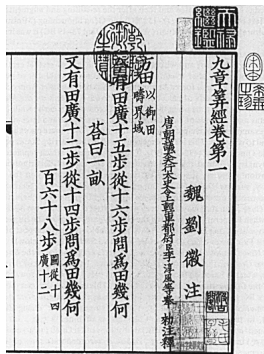 天祿繼鑑
九章筭經卷第一
魏劉徽注
唐朝議大夫行太史令上輕車都尉臣李淳風等奉 勅注釋
乾隆御覽之寶
方田 以御田
疇界域
今有田廣十五步從十六步問爲田幾何
荅曰一畝
又有田廣十二步從十四步問爲田幾何
百六十八步 圖從十四
廣十二